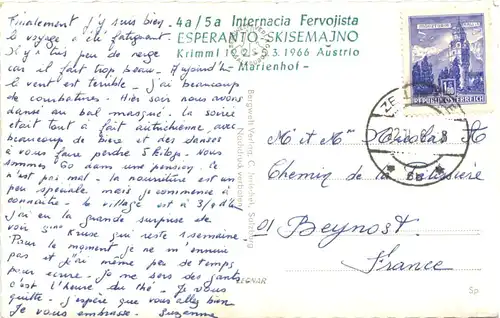 Finalement j'y suis bien -
le voyage a été fatigant.
Il y a très peu de neige
car il fait trop beau. - Aujourd'h
le vent est terrible - J'ai beaucoup
de combatines. Hier soir nous avons
dansé au bal masqué. La soirée
était tout à fait autrichienne, avec
beaucoup de bière et des danses
à vous faire perdre 5 kilogs. Nous
sommes 60 dans une pension. Ce
n'est pas mal - la nourriture est un
peu spéciale mais je commence à
connaître. Le village est à 3/4 d'h
j'ai eu la grande surprise de
voir 1 russe qui reste 1 semaine
Pour le moment je ne m'ennuie
pas et j'ai même pas de temps
pour écrire. Je ne sers des gants
c'est l'heure du thé. Je vous
quitte. J'espère que vous allez bien
Je vous embrasse. Suzanne
4a/5a Internacia Fervojista
ESPERANTO-SKISEMAJNO
Krimml 1966 Aŭstrio
- Marienhof -
Bergwelt-Verlag C. Jurischek, Salzburg
Nachdruck verboten
LEGNAR
REPUBLIK ÖSTERREICH
M et Mme Nicolas A
Chemin de la
01 Beynost
France
Sp.